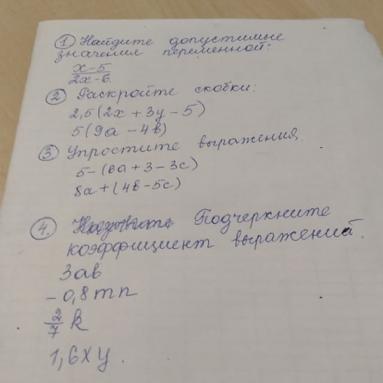 ① Найдите допустимые
значения переменной:
x-5
2x-6
② Раскройте скобки:
2,5(2x+3y-5)
5(9a-4b)
③ Упростите выражения,
5-(6a+3-3c)
8a+(4b-5c)
④. Подчеркните
коэффициент выражений.
3ab
-0,8mn
2/7 k
1,6xy.